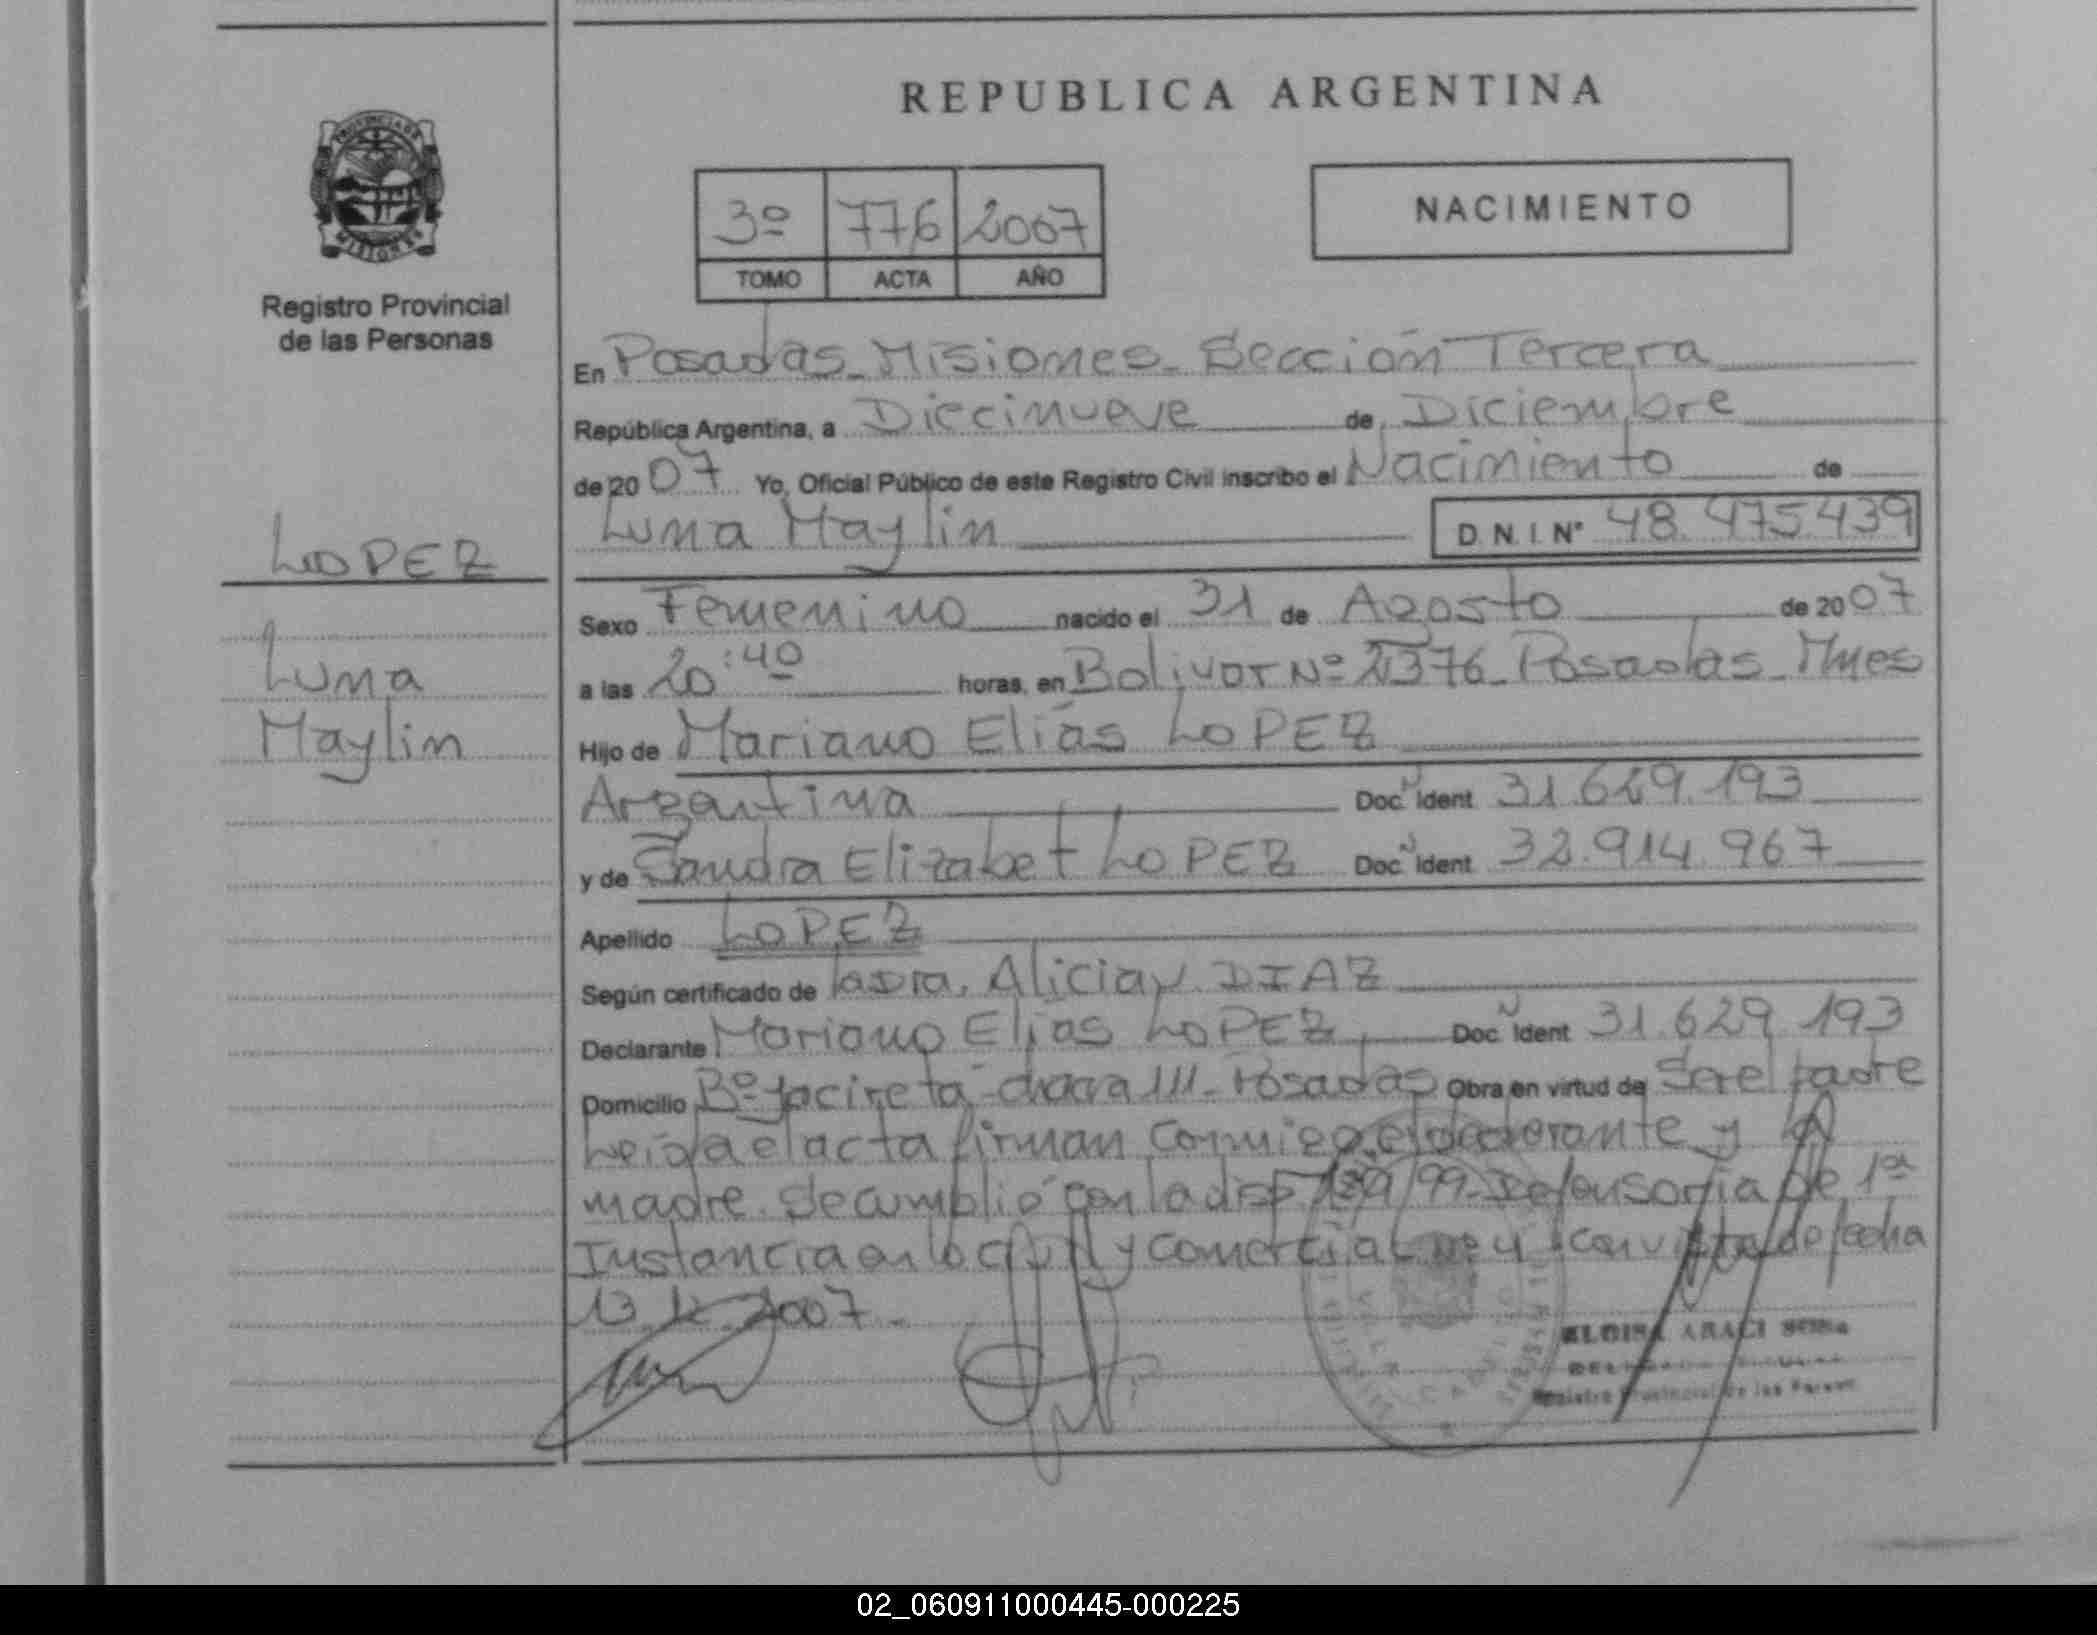 REPUBLICA ARGENTINA
PROVINCIA DE
MISIONES
Registro Provincial
de las Personas
3º 776 2007
TOMO ACTA AÑO
NACIMIENTO
En Posadas - Misiones - Sección Tercera
República Argentina, a Diecinueve de Diciembre
de 20 07 Yo, Oficial Público de este Registro Civil inscribo el Nacimiento de
Luna Maylin D.N.I. Nº 48.475.439
LOPEZ
Luna
Maylin
Sexo Femenino nacido el 31 de Agosto de 20 07
a las 20:40 horas, en Bolivar Nº 2376 - Posadas - Mnes
Hijo de Mariano Elías LOPEZ
Argentina Doc. Ident 31.629.193
y de Sandra Elizabet LOPEZ Doc. Ident 32.914.967
Apellido LOPEZ
Según certificado de la Dra. Alicia DIAZ
Declarante Mariano Elias LOPEZ Doc. Ident 31.629.193
Domicilio Bº Yacireta - chacra 111 - Posadas Obra en virtud de Ser el padre
Leída el acta firman conmigo el declarante y la
madre. Se cumplió con la disp /99 - Defensoria de 1ª
Instancia en lo civil y comercial nº 4 con vista de fecha
2007.-
ELOISA ARACI
Registro Provincial de las Person
02_060911000445-000225